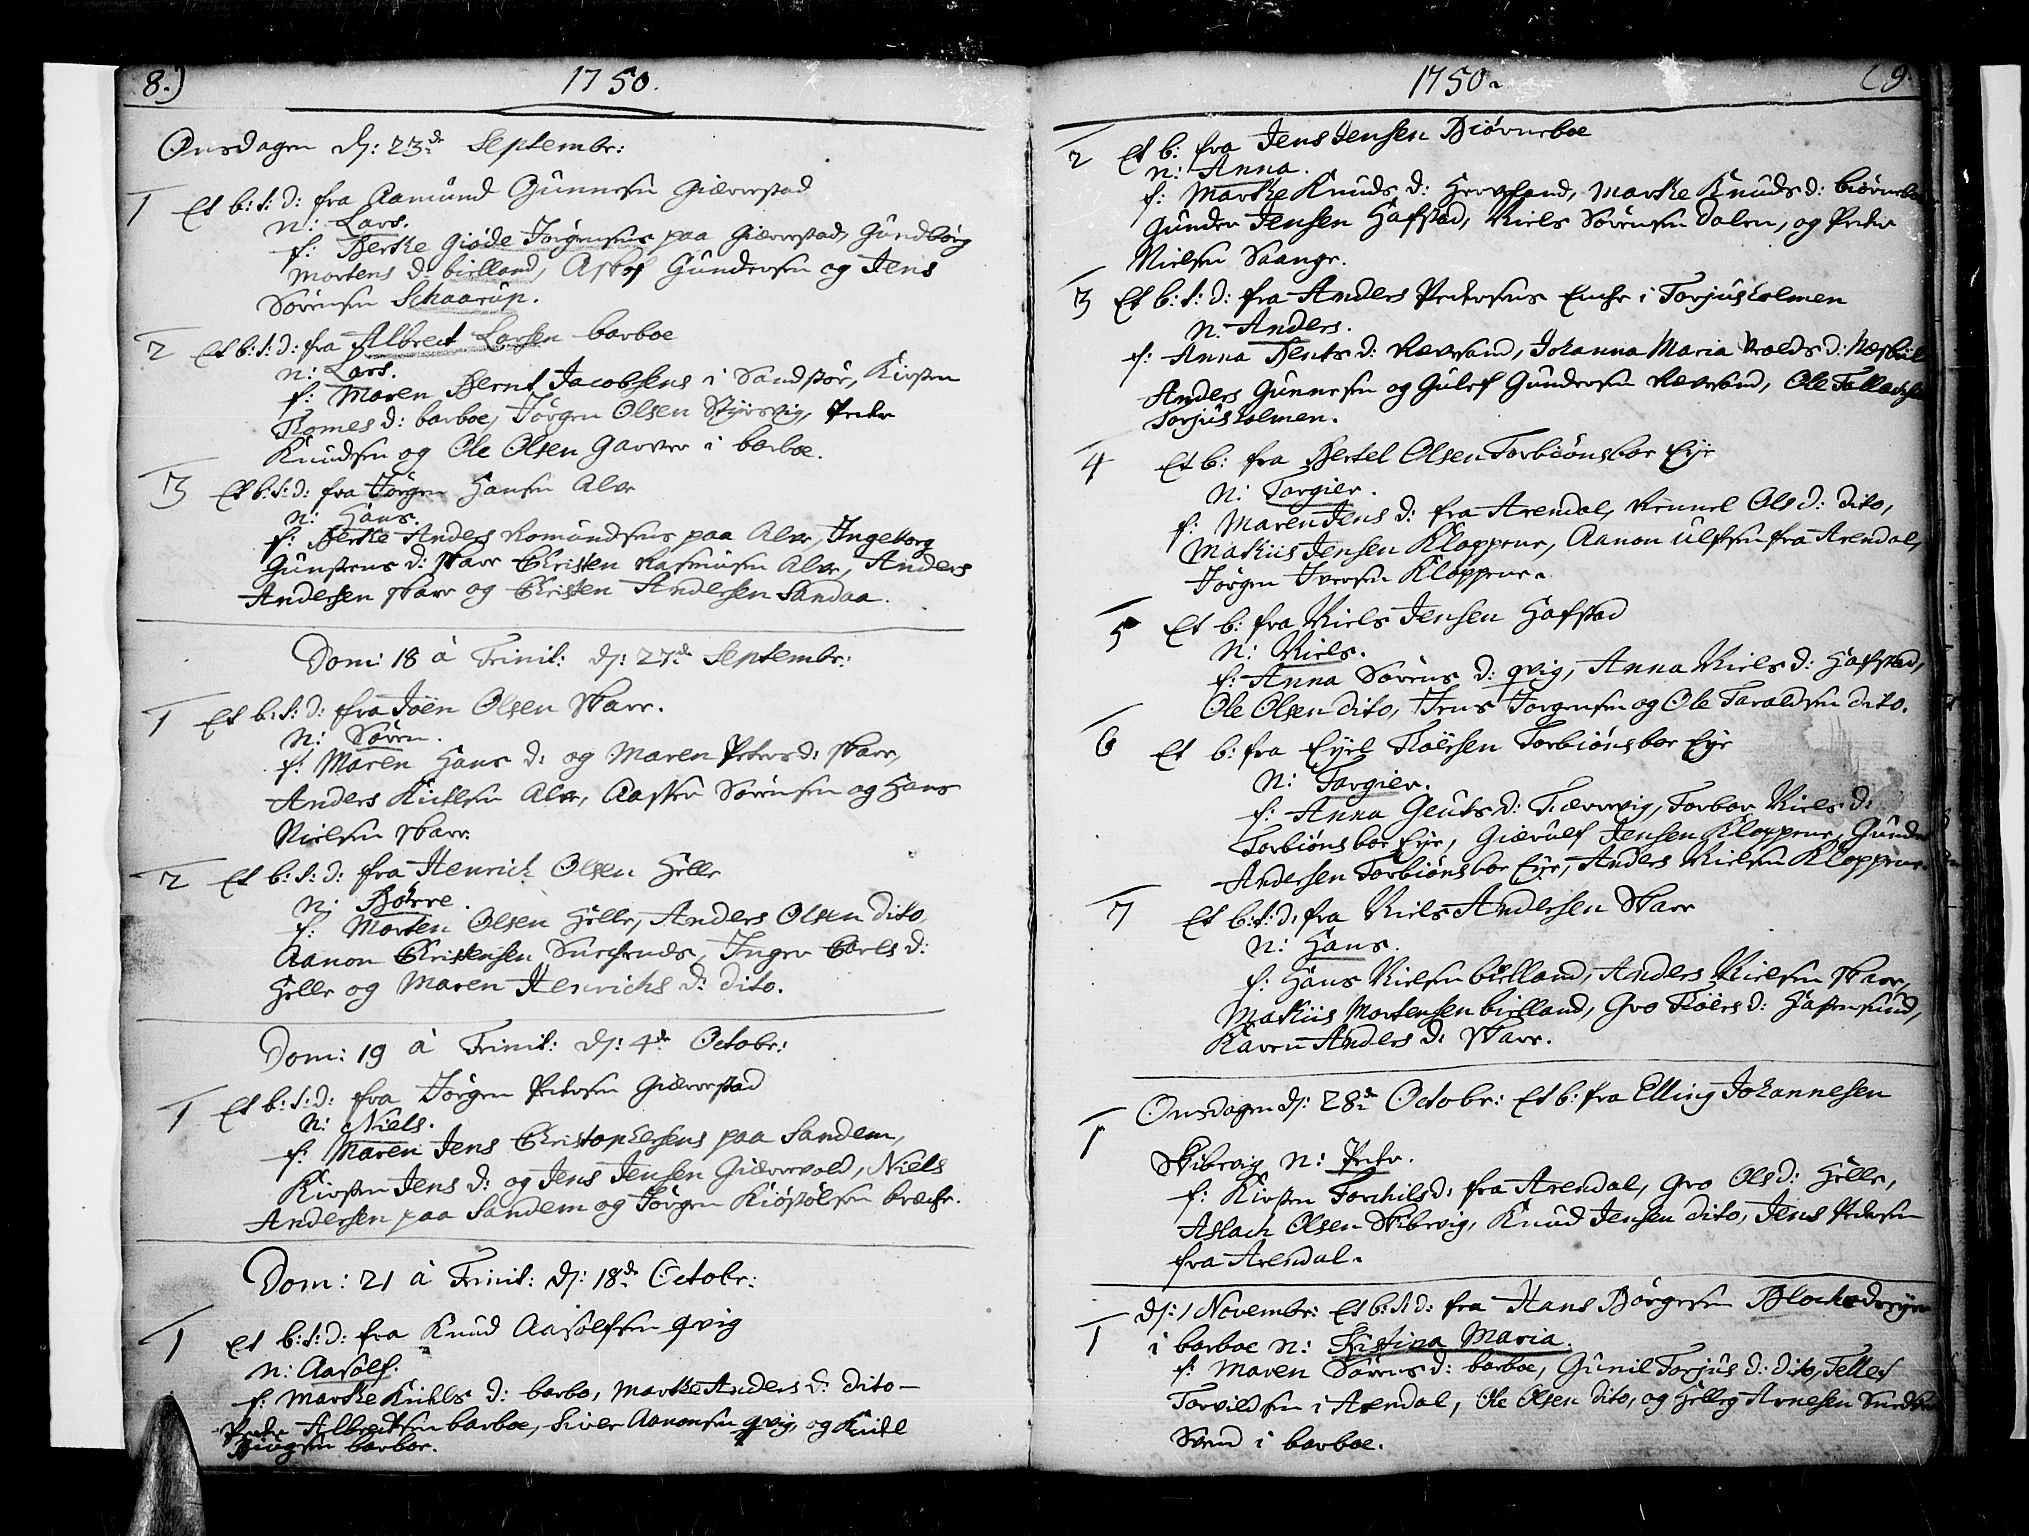 8.) 1750.
Onsdagen d: 23de Septembr:
1 Et b: s: d: fra Aamund Gunnersen Giærrestad
n: Lars.
f: Berthe Giøde Jørgensens paa Giærrestad, Gundborg
Mortens d: bielland, Gundersen og Jens
Sørensen Schaarup.
2 Et b: s: d: fra Albrect Larsen barboe
n: Lars.
f: Maren Bernt Jacobsens i Sandstøe, Kirsten
Thomes d: barboe, Jørgen Olsen Styrsvig, Peder
Knudsen og Ole Olsen Garver i barboe.
3 Et b: s: d: fra Jørgen Hansen Alve
n: Hans.
f: Berthe Anders Romundsens paa Alve, Ingeborg
Gunstens d: Skare Christen Rasmusen Alve, Anders
Andersen Skare og Christen Andersen Sandaa.
Dom: 18 à Trinit: d: 27de Septembr:
1 Et b: s: d: fra Joen Olsen Skare.
n: Søren.
f: Maren Hans d: og Maren Peders d: Skare,
Anders Kittelsen Alve, Aasten Sørensen og Hans
Nielsen Skare.
2 Et b: s: d: fra Henrich Olsen Helle
n: Børre.
f: Morten Olsen Helle, Anders Olsen dito
Aanon Christensen Inger Carls d:
Helle og Maren Henrichs d: dito.
Dom: 19 à Trinit: d: 4de Octobr:
1 Et b: s: d: fra Jørgen Pedersen Giærrestad
n: Niels.
f: Maren Jens Christophersens paa Sandem,
Kirsten Jens d: og Jens Jensen Giærevold, Niels
Andersen paa Sandem og Jørgen Kiøstølsen
Dom: 21 à Trinit: d: 18de Octobr:
1 Et b: s: d: fra Knud Aasolfsen qvig
n: Aasolf.
f: Marthe Kittels d: barbo, Marthe Anders d: dito
Peder Albrectsen barboe, Siver Aanonsen qvig, og Kittil
barboe.
1750. (9.
2 Et b: fra Jens Jensen Biørneboe
n: Anna.
f: Marthe Knuds d: Marthe Knuds d:
Gunder Jensen Hafstad, Niels Sørensen Dalen, og Peder
Nielsen Saange.
3 Et b: s: d: fra Anders Pedersens Enche i Torjusholmen
n: Anders.
f: Anna Bents d: Rævesand, Johanna Maria d:
Anders Gunnersen og Gulef Gundersen Rævesand, Ole
Torjusholmen.
4 Et b: fra Bertel Olsen Torbiønsboe Eye
n: Targier.
f: Maren Jens d: fra Arendal, Ols d: dito,
Mathis Jensen Kloppene, Aanon Ulfsen fra Arendal,
Jørgen Iversen Kloppene.
5 Et b: fra Niels Jensen Hafstad
n: Niels.
f: Anna Sørens d: qvig, Anna Niels d: Hafstad,
Ole Olsen dito, Jens Jørgensen og Ole Taraldsen dito.
6 Et b: fra Torbiønsboe Eye
n: Targier.
f: Anna d: Torbor Niels d:
Torbiønsboe Eye, Giærulf Jensen Kloppene, Gunder
Andersen Torbiønsboe Eye, Anders Nielsen Kloppene.
7 Et b: s: d: fra Niels Andersen Skare
n: Hans.
f: Hans Nielsen bielland, Anders Nielsen Skare,
Mathis Mortensen bielland, Gro d:
Karen Anders d: Skare.
1 Onsdagen d: 28de Octobr: Et b: fra Elling Johannesen
Skibevig n: Peder.
f: Kirsten Torchils d: fra Arendal, Gro Ols d: Helle,
Aslach Olsen Skibevig, Knud Jensen dito, Jens Pedersen
fra Arendal.
1 d: 1 Novembr: Et b: s: d: fra Hans Børgesen
i barboe n: Christina Maria.
f: Maren Sørens d: barboe, Gunil Torjus d: dito, Tellef
Torvildsen i Arendal, Ole Olsen dito, og Helleg Arnesen
Svend i barboe.